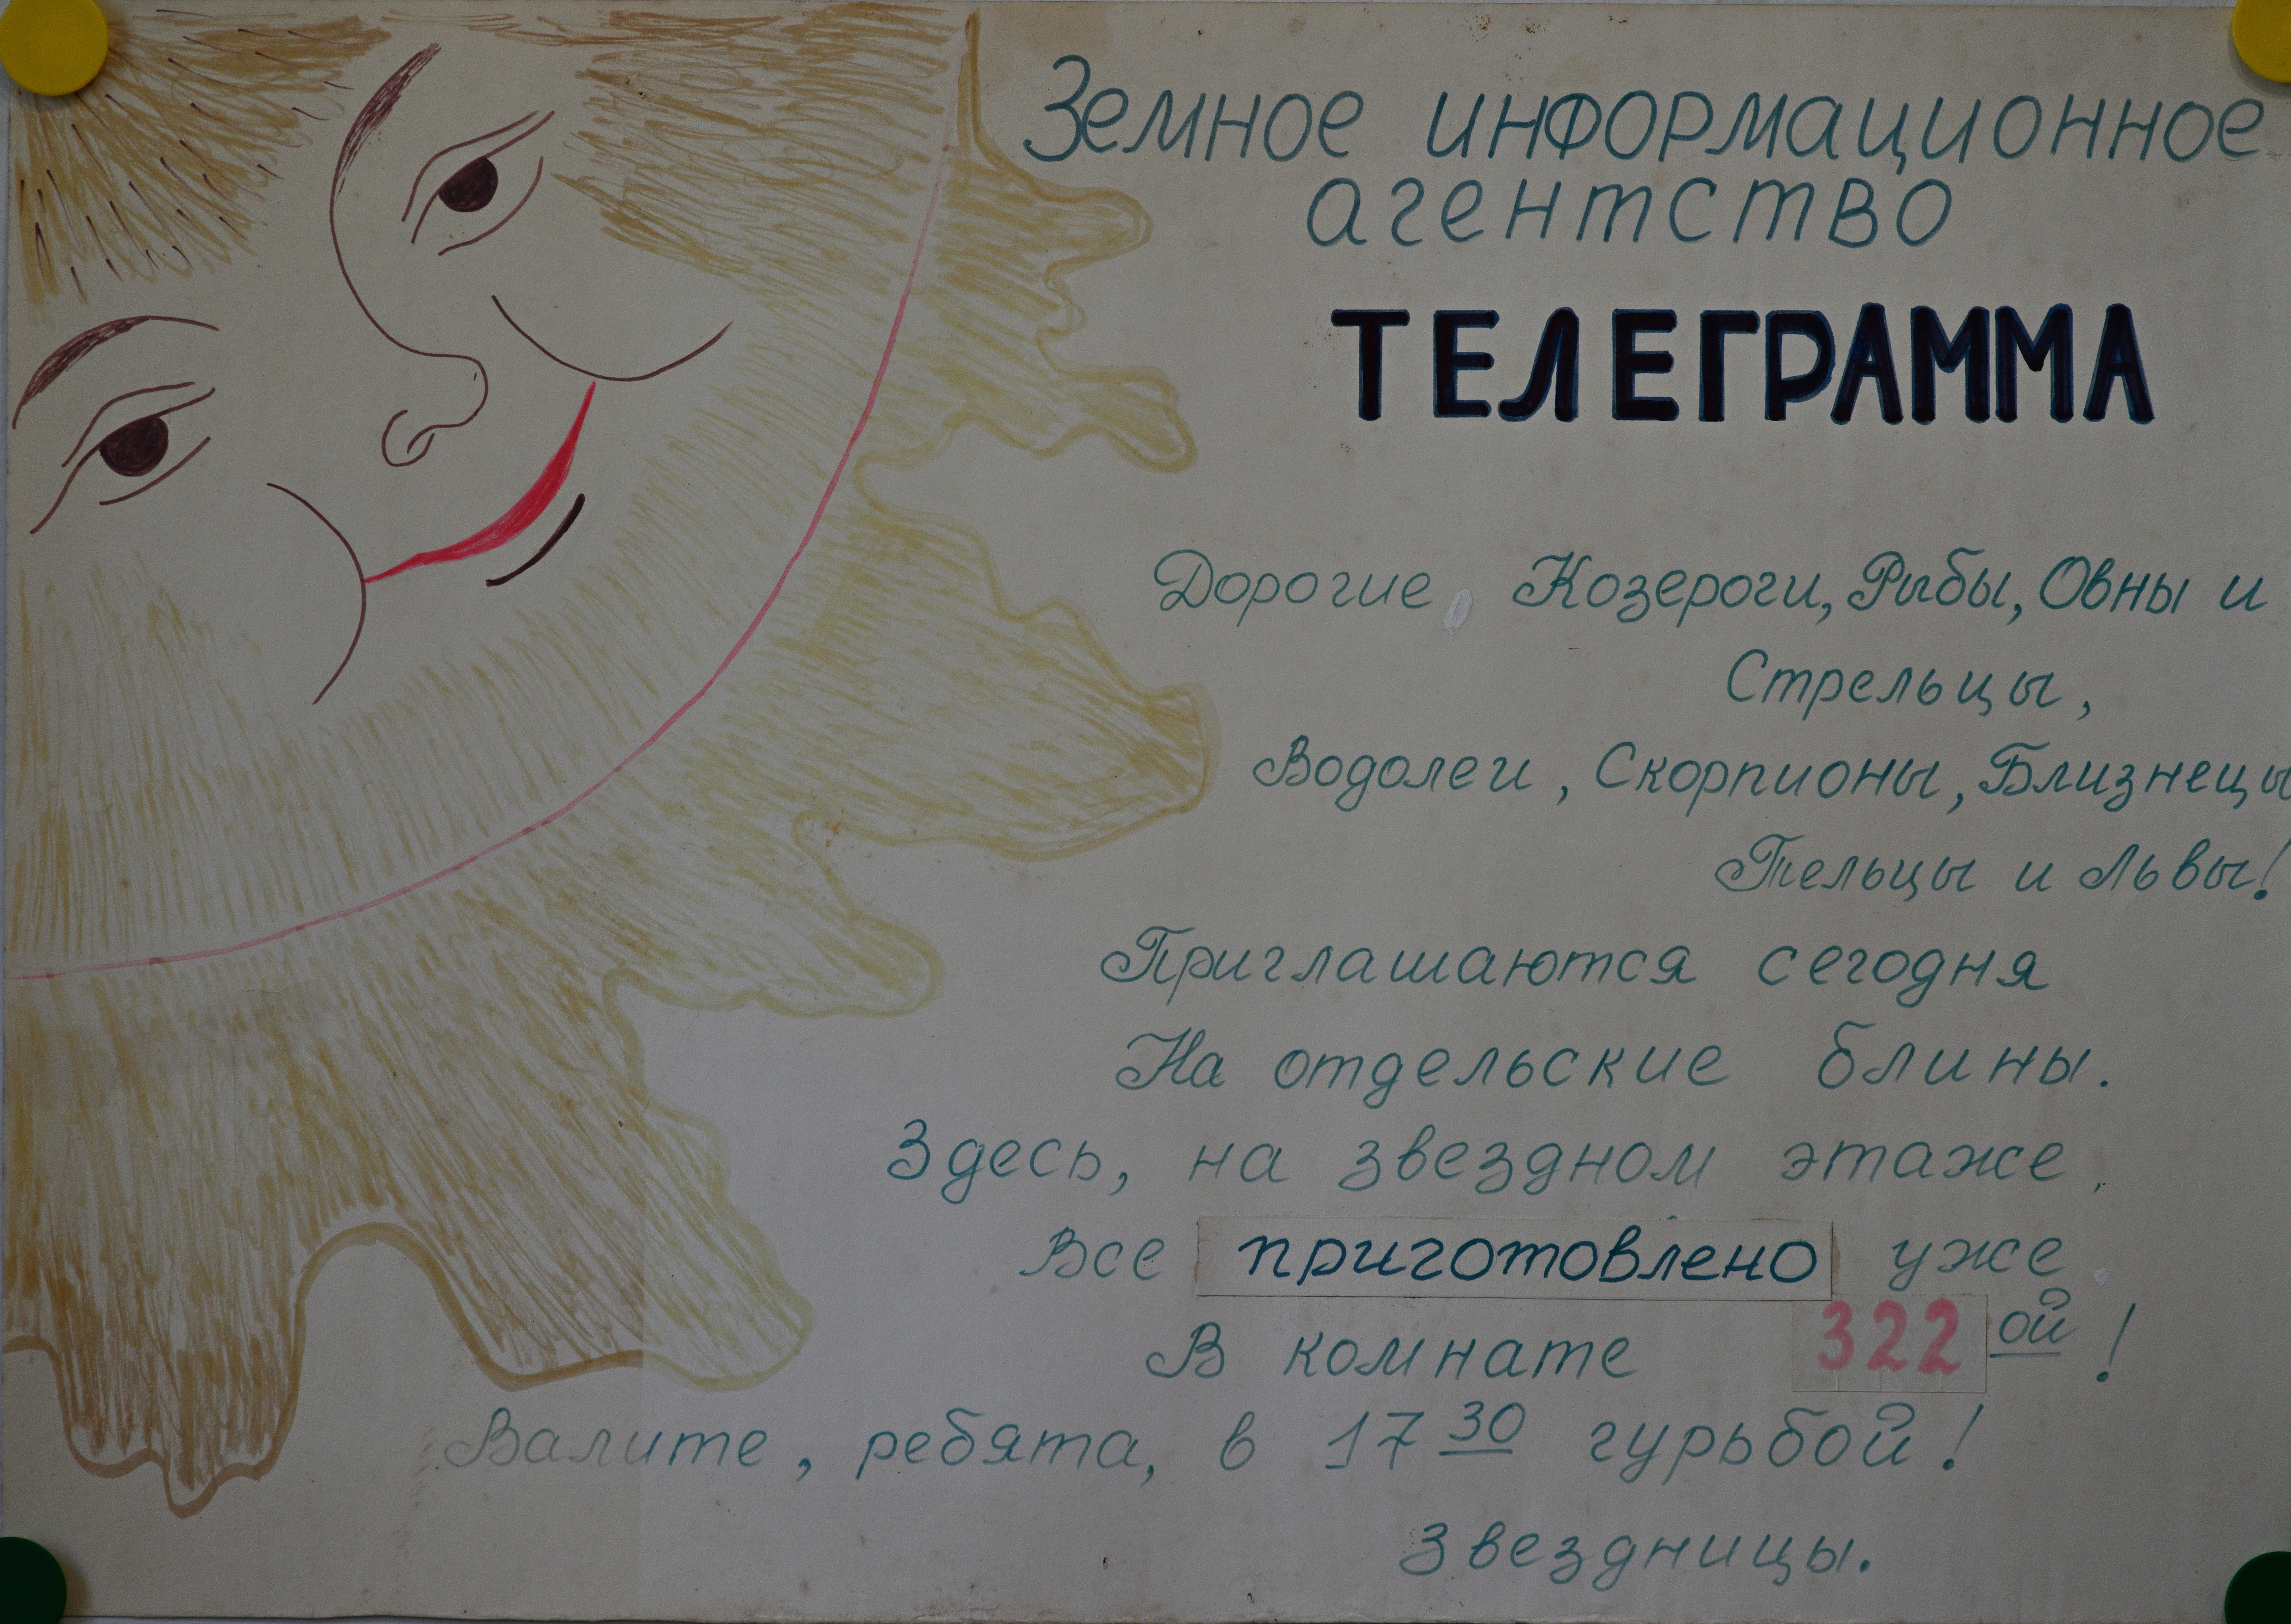 Земное информационное
агентство
ТЕЛЕГРАММА
Дорогие Козероги, Рыбы, Овны и
Стрельцы,
Водолеи, Скорпионы, Близнецы
Тельцы и Львы!
Приглашаются сегодня
На отдельские блины.
Здесь, на звездном этаже,
Все приготовлено уже
В комнате 322 ой!
Валите, ребята, в 17 30 гурьбой!
Звездницы.